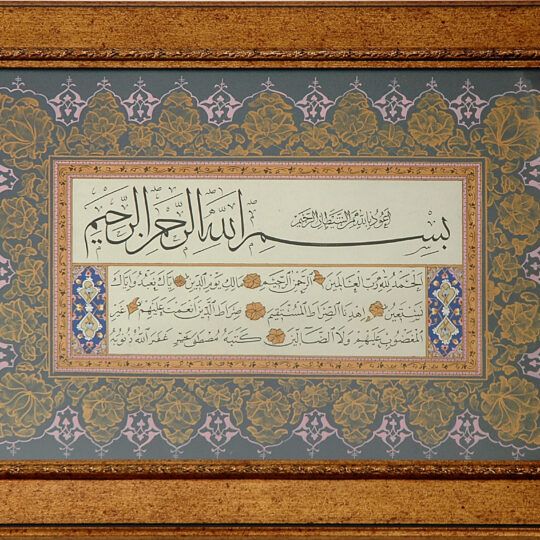 أَعُوذُ بِاللَّهِ مِنَ الشَّيْطَانِ الرَّجِيمِ
بِسْمِ اللَّهِ الرَّحْمٰنِ الرَّحِيمِ
اَلْحَمْدُ لِلَّهِ رَبِّ الْعَالَمِينَ الرَّحْمٰنِ الرَّحِيمِ مَالِكِ يَوْمِ الدِّينِ إِيَّاكَ نَعْبُدُ وَإِيَّاكَ
نَسْتَعِينُ اِهْدِنَا الصِّرَاطَ الْمُسْتَقِيمَ صِرَاطَ الَّذِينَ أَنْعَمْتَ عَلَيْهِمْ غَيْرِ
الْمَغْضُوبِ عَلَيْهِمْ وَلَا الضَّالِّينَ كَتَبَهُ مُصْطَفَى غَفَرَ اللَّهُ ذُنُوبَهُ